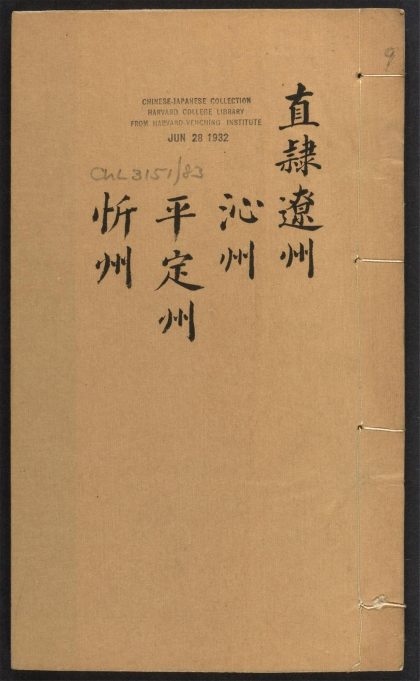 直隸遼州
沁州
平定州
忻州
CHINESE-JAPANESE COLLECTION
HARVARD COLLEGE LIBRARY
FROM HARVARD-YENCHING INSTITUTE
JUN 28 1932
ChL 3151/83
9